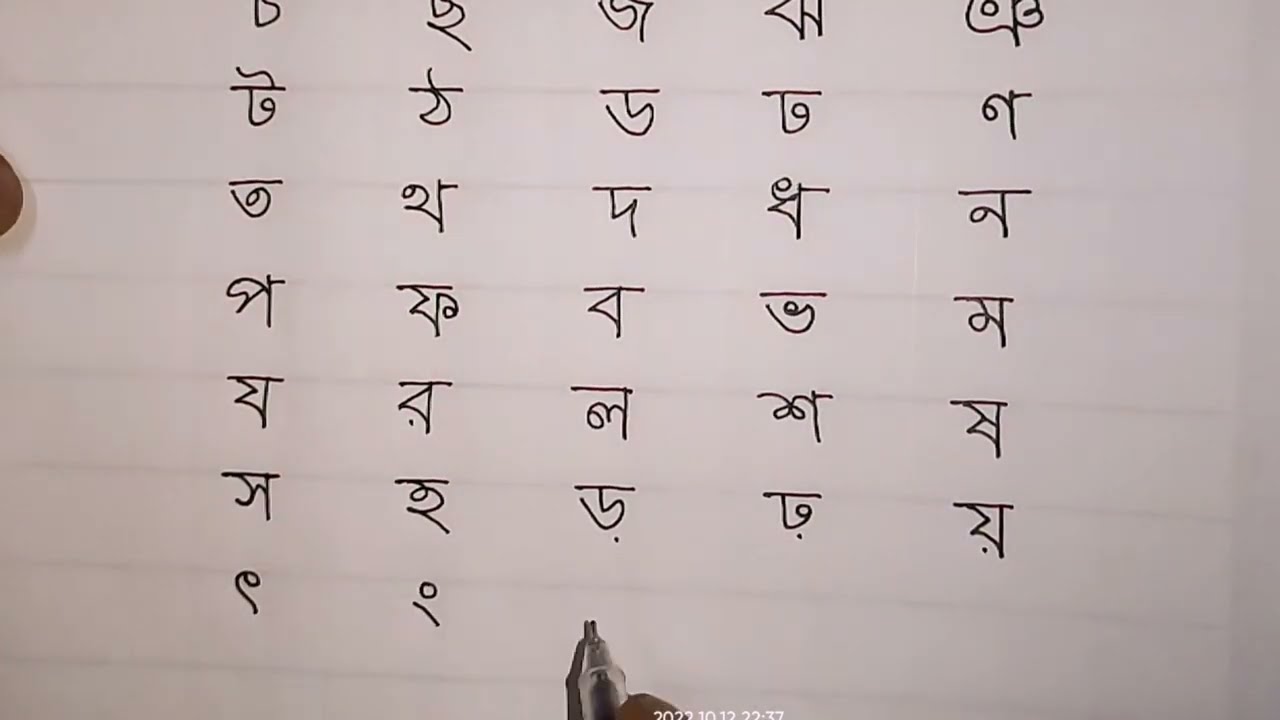 চ ছ জ ঝ ঞ
ট ঠ ড ঢ ণ
ত থ দ ধ ন
প ফ ব ভ ম
য র ল শ ষ
স হ ড় ঢ় য়
ৎ ং
2022.10.12 22:37